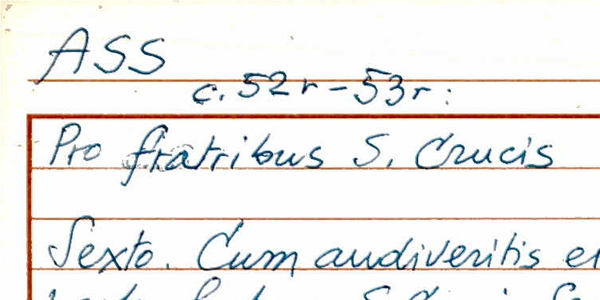 ASS
c. 52r-53r:
Pro fratribus S. Crucis
Sexto. Cum audiveritis